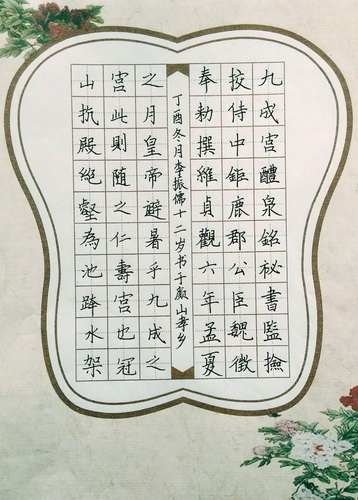 九成宫醴泉銘祕書監撿
挍侍中鉅鹿郡公臣魏徵
奉勑撰維貞觀六年孟夏
丁酉冬月李振儒十二岁书于殿山孝乡
之月皇帝避暑乎九成之
宫此則随之仁壽宫也冠
山抗殿绝壑為池跨水架